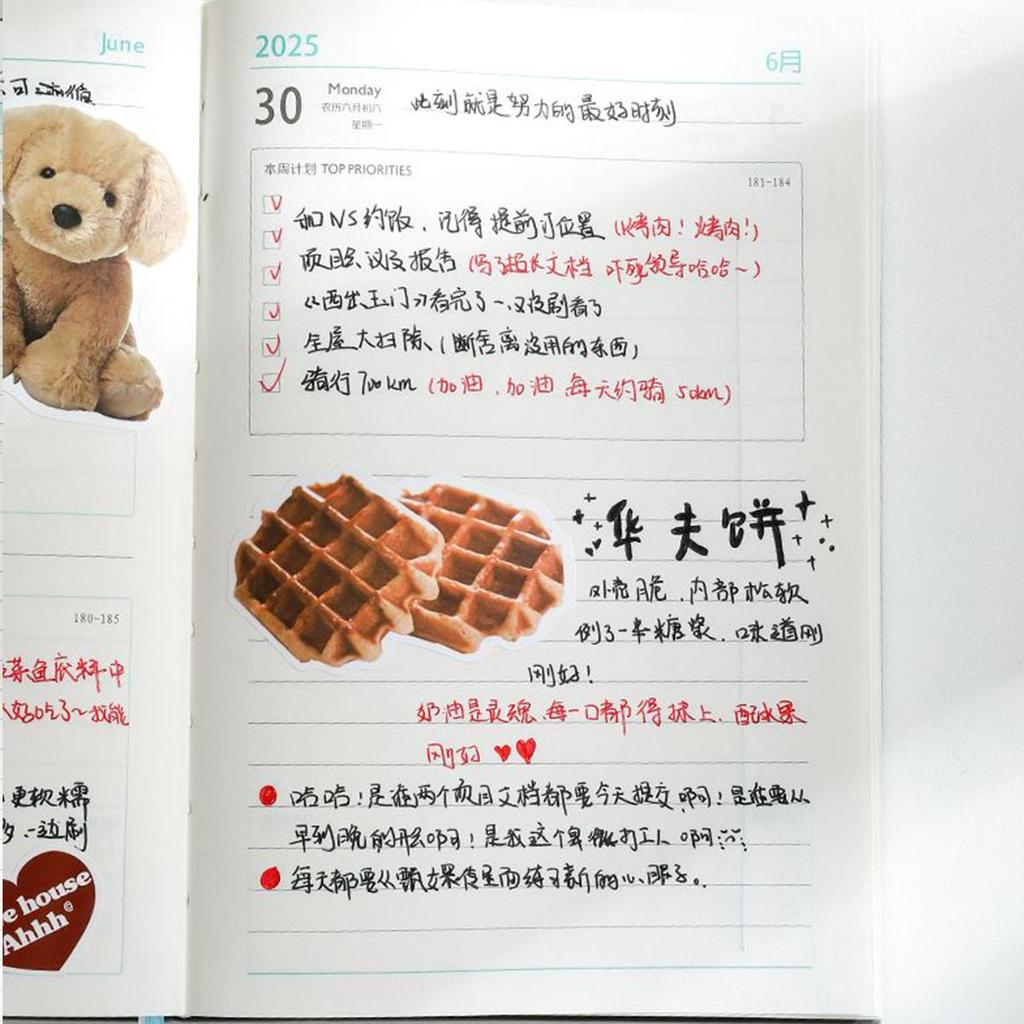 June
可
180-185
菜鱼底料中
好吃了~我能
更软糯
一边刷
e house
Ahhh©
2025
6月
30 Monday
农历六月初六
星期一
此刻就是努力的最好时刻
本周计划 TOP PRIORITIES
181-184
和NS约饭,记得提前订位置 (烤肉!烤肉!)
项目会议及报告 (写了超长文档 吓死领导哈哈~)
《西出玉门》看完了~又没剧看了
全屋大扫除,(断舍离没用的东西)
骑行700km (加油,加油 每天约骑50km)
华夫饼
外壳脆,内部松软
倒了一条糖浆,味道刚
刚好!
奶油是灵魂,每一口都得抹上,配水果
刚好
哈哈!是谁两个项目文档都要今天提交啊!是谁要从
早到晚的开会啊!是我这个卑微打工人啊
每天都要从甄嬛传里面练习新的心眼子。